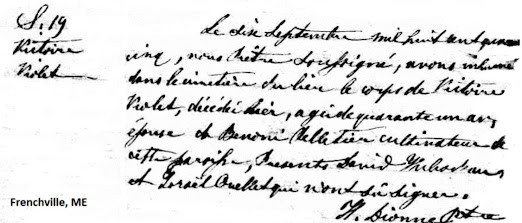 S. 19
Victoire
Violet
Le dix Septembre mil huit cent quara
cinq, nous Prêtre Soussigné, avons inhumé
dans le cimetière du lieu le corps de Victoire
Violet, décédé hier, agé de quarante un ans
épouse de Benoni Pelletier cultivateur de
cette paroisse, Presents David
et Israël Ouellet qui n'ont su signer.
H. Dionne Ptre
Frenchville, ME